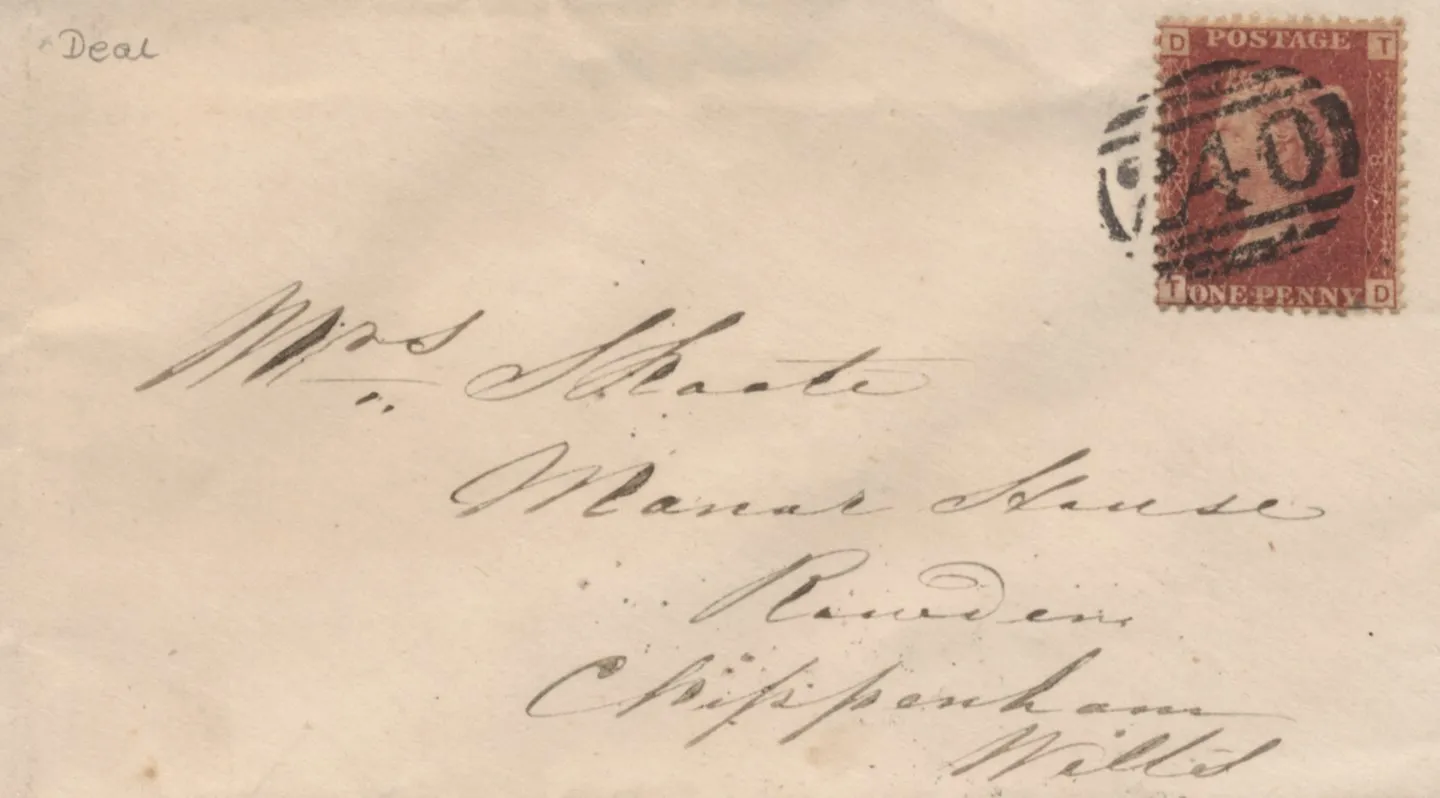 Deal
D POSTAGE T
T ONE PENNY D
Mrs Skeate
Manor House
Rowden
Chippenham
Wilts